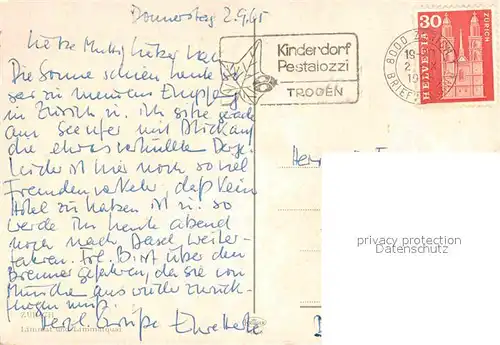 Donnerstag 2.9.65
Liebe Mutti, Lieber
Die Sonne schien heute
gar zu meinem Empfang
in Zürich u. ich sitze gerade
am Seeufer mit Blick auf
die etwas verhüllten Berge.
Leider ist hier noch so viel
Fremdenverkehr, daß kein
Hotel zu haben ist u. so
werde ich heute abend
noch nach Basel weiter-
fahren. Frl. B. ist über den
Brenner gefahren, da sie von
München aus wieder zurück-
fliegen muß.
Herzl. Grüße
ZÜRICH
Limmat und Limmatquai
Kinderdorf
Pestalozzi
TROGEN
8000 ZÜRICH
BRIEF
30
HELVETIA
ZÜRICH
privacy protection
Datenschutz